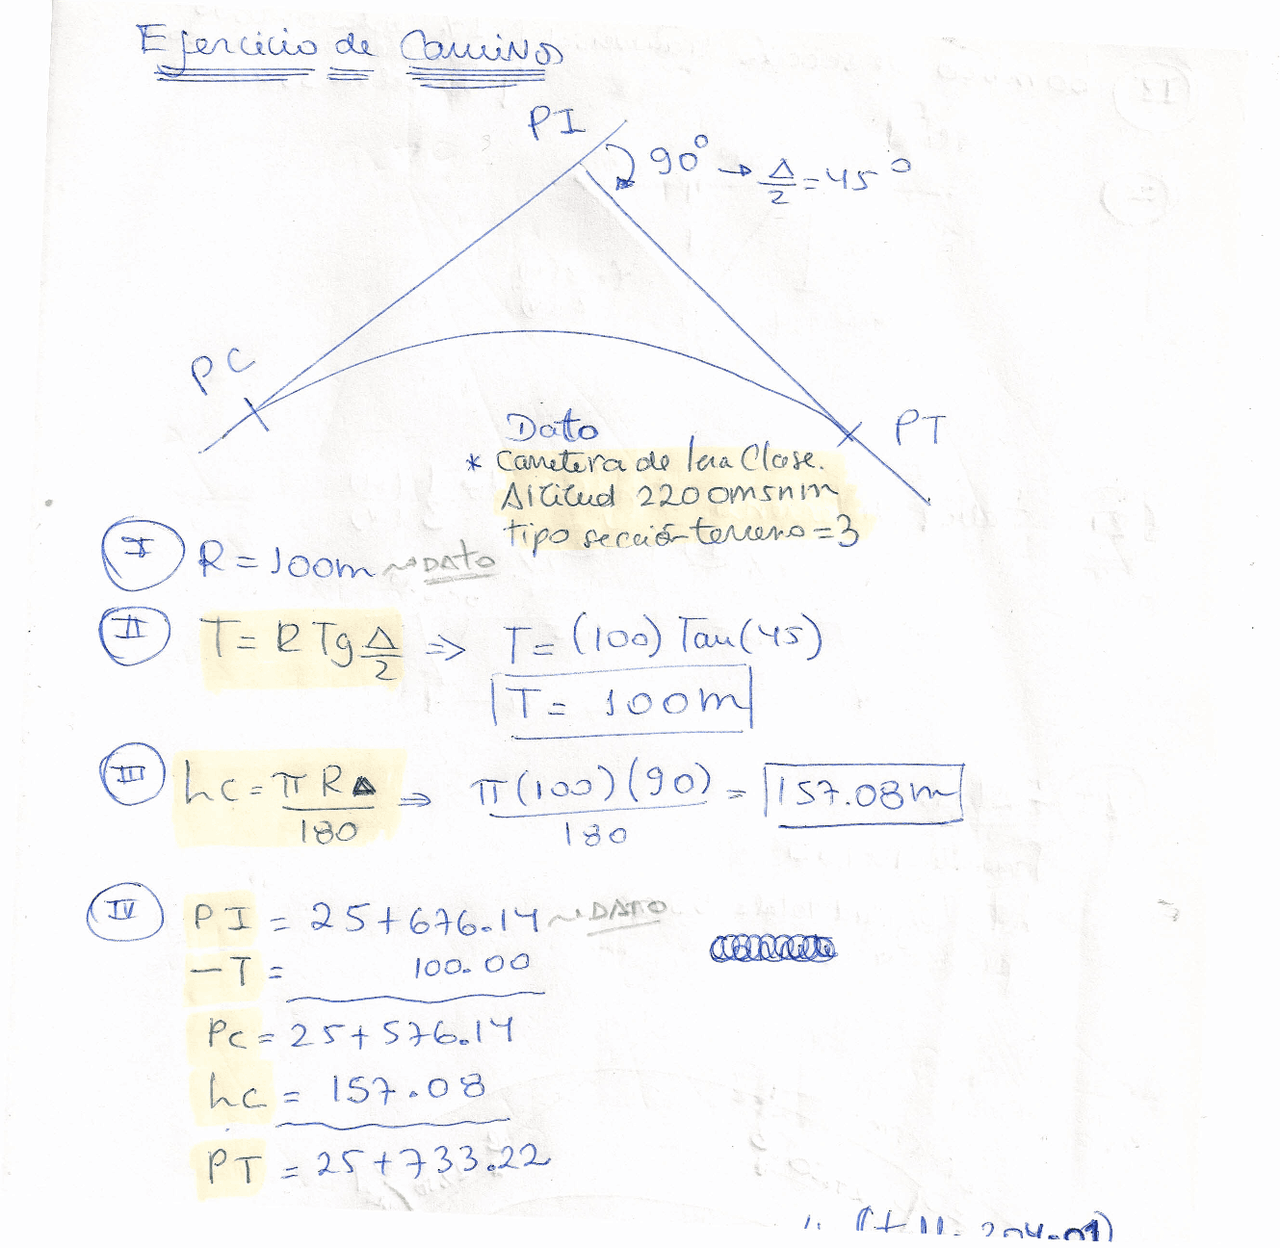 Ejercicio de Caminos
PI
90° → Δ/2 = 45°
PC
PT
Dato
* Carretera de 1era Clase.
Altitud 2200msnm
tipo sección terreno = 3
I R = 100m → DATO
II T = R Tg Δ/2 ⇒ T = (100) Tan(45)
T = 100m
III Lc = π R Δ / 180 ⇒ π(100)(90) / 180 = 157.08m
IV PI = 25+676.14 → DATO
-T = 100.00
Pc = 25+576.14
Lc = 157.08
PT = 25+733.22